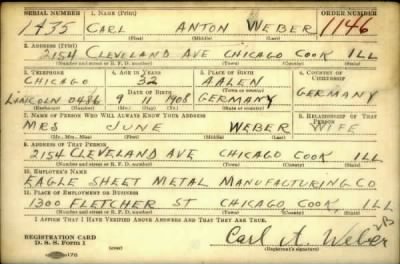 SERIAL NUMBER 1. NAME (Print) ORDER NUMBER
1435 CARL ANTON WEBER 1146
(First) (Middle) (Last)
2. ADDRESS (Print)
2154 CLEVELAND AVE CHICAGO COOK ILL
(Number and street or R. F. D. number) (Town) (County) (State)
3. TELEPHONE 4. AGE IN YEARS 5. PLACE OF BIRTH 6. COUNTRY OF CITIZENSHIP
CHICAGO 32 AALEN
LINCOLN 0486 DATE OF BIRTH (Town or county) GERMANY
9 11 1908 GERMANY
(Exchange) (Number) (Mo.) (Day) (Yr.) (State or country)
7. NAME OF PERSON WHO WILL ALWAYS KNOW YOUR ADDRESS 8. RELATIONSHIP OF THAT PERSON
MRS JUNE WEBER WIFE
(Mr., Mrs., Miss) (First) (Middle) (Last)
9. ADDRESS OF THAT PERSON
2154 CLEVELAND AVE CHICAGO COOK ILL
(Number and street or R. F. D. number) (Town) (County) (State)
10. EMPLOYER'S NAME
EAGLE SHEET METAL MANUFACTURING CO
11. PLACE OF EMPLOYMENT OR BUSINESS
1300 FLETCHER ST CHICAGO COOK, ILL
(Number and street or R. F. D. number) (Town) (County) (State)
I AFFIRM THAT I HAVE VERIFIED ABOVE ANSWERS AND THAT THEY ARE TRUE.
REGISTRATION CARD
D. S. S. Form 1
Carl A. Weber
(Registrant's signature)